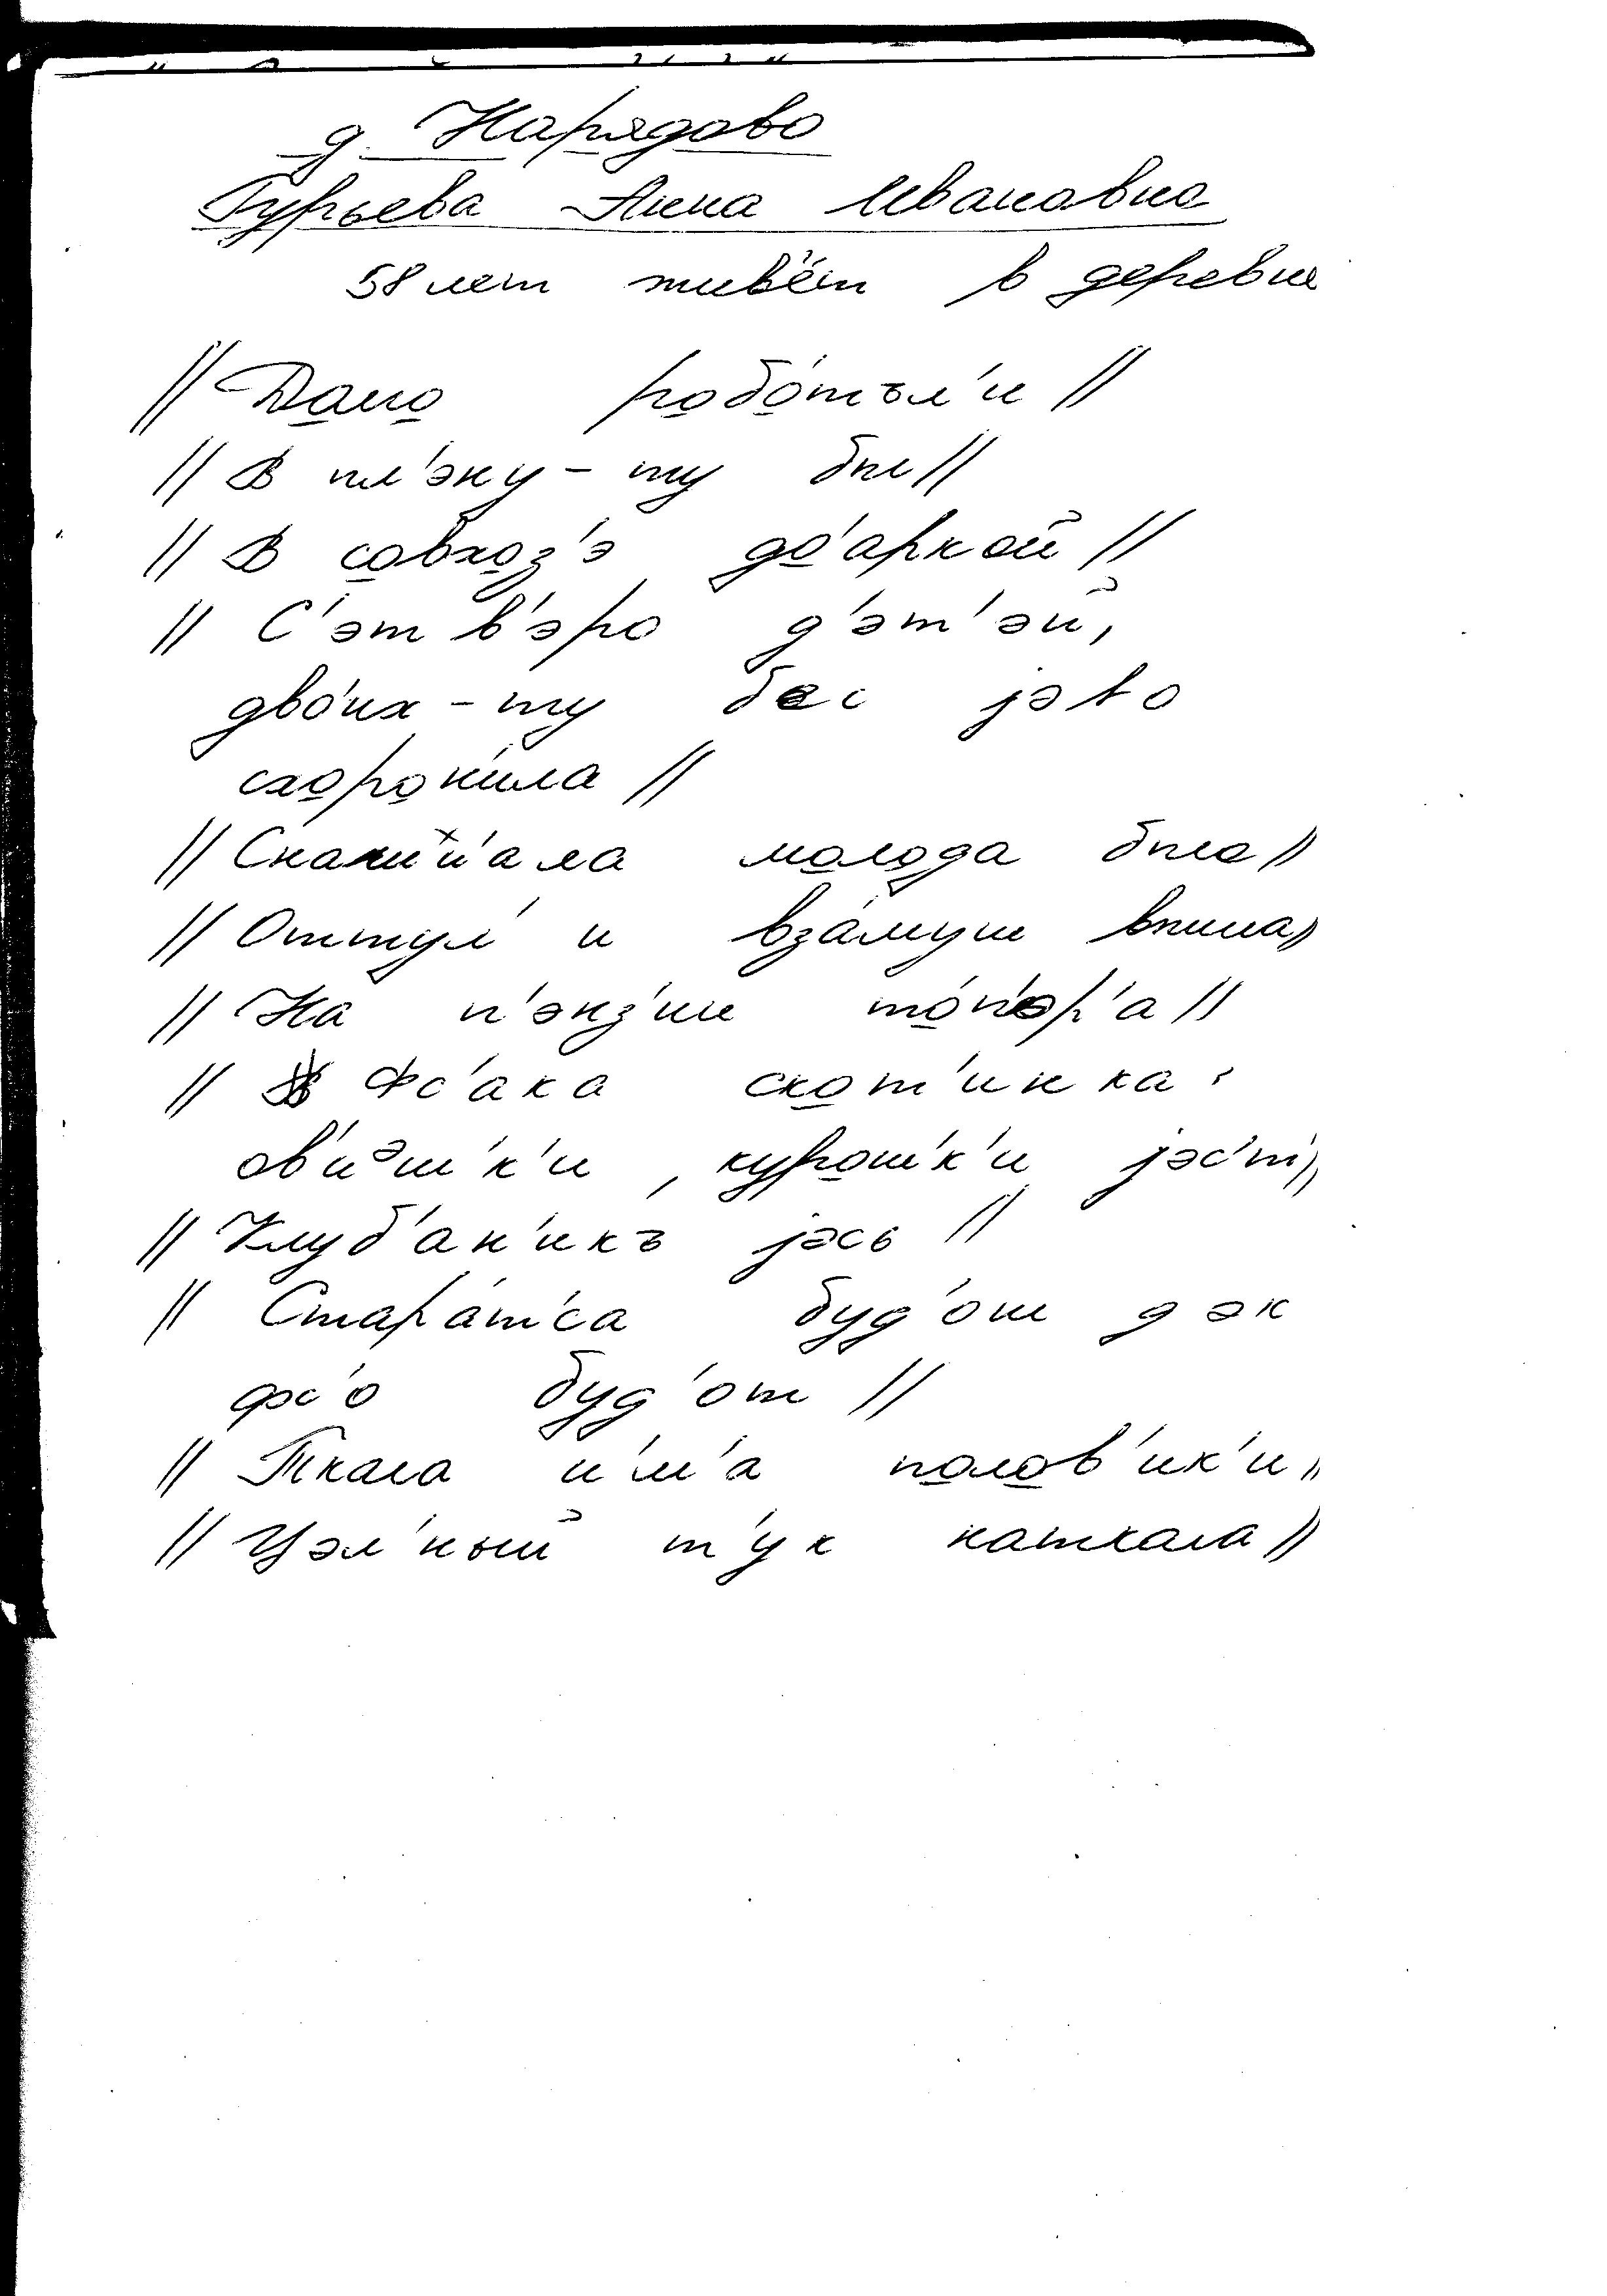 д. Нарядово
Гурьева Анна Ивановна
58 лет живёт в деревне
// Дома робо́тъл'и //
// В пл'эну-ту был //
// В совхоз'э до'аркой //
// С'эт в'эро д'эт'эй,
дво́их-ту бес јэво
схорони́ла //
// молода была //
// Оттул' и вза́муш вышла //
// На п'энз'ии то́п'эр'а //
// Фс'ака скот'инка:
ов'и̂эш'к'и, курош'к'и јэс'т' //
// Клуб'ан'икъ јэсь //
// Стара́т'са буд'ош дэк
фс'о буд'от //
// Ткала и м'а полов'ик'и //
// Цэл'ный т'ук наткала //